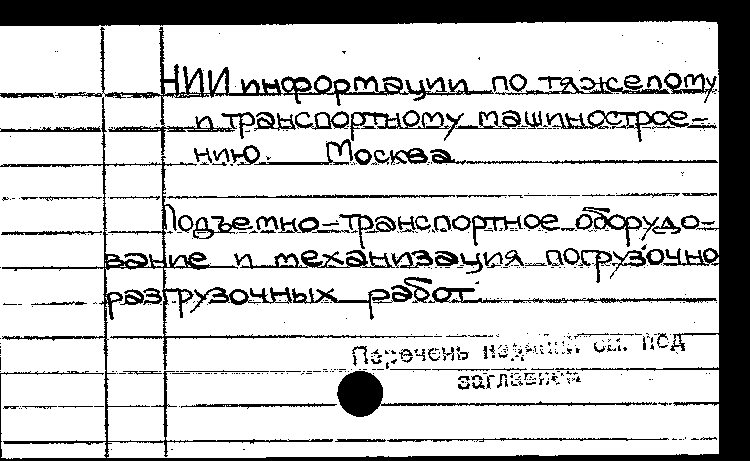 НИИ информации по тяжелому
и транспортному машинострое-
нию. Москва
Подъемно-транспортное оборудо-
вание и механизация погрузочно
разгрузочных работ.
Перечень изданий см. под
заглавием